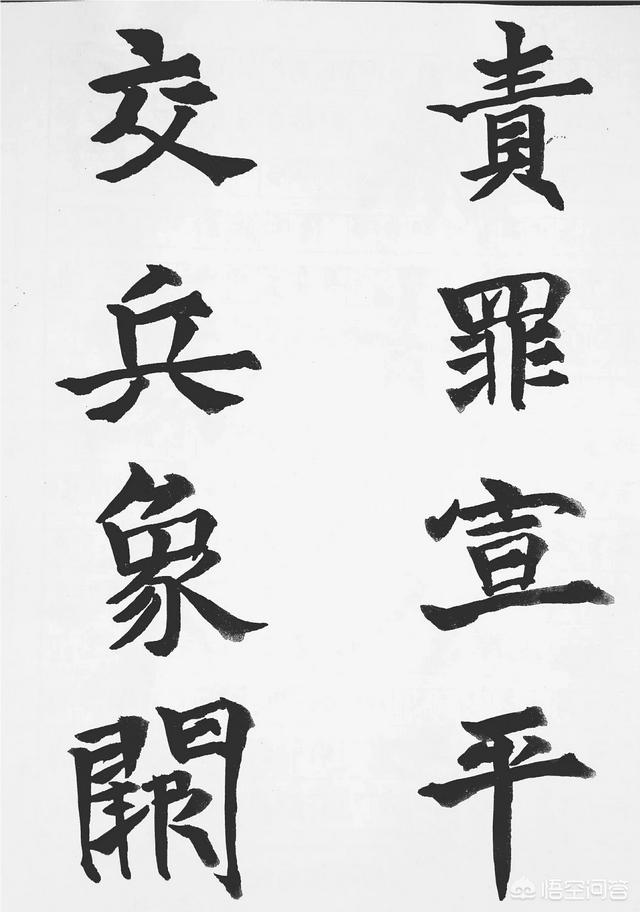 責罪宣平
交兵象闕
悟空问答